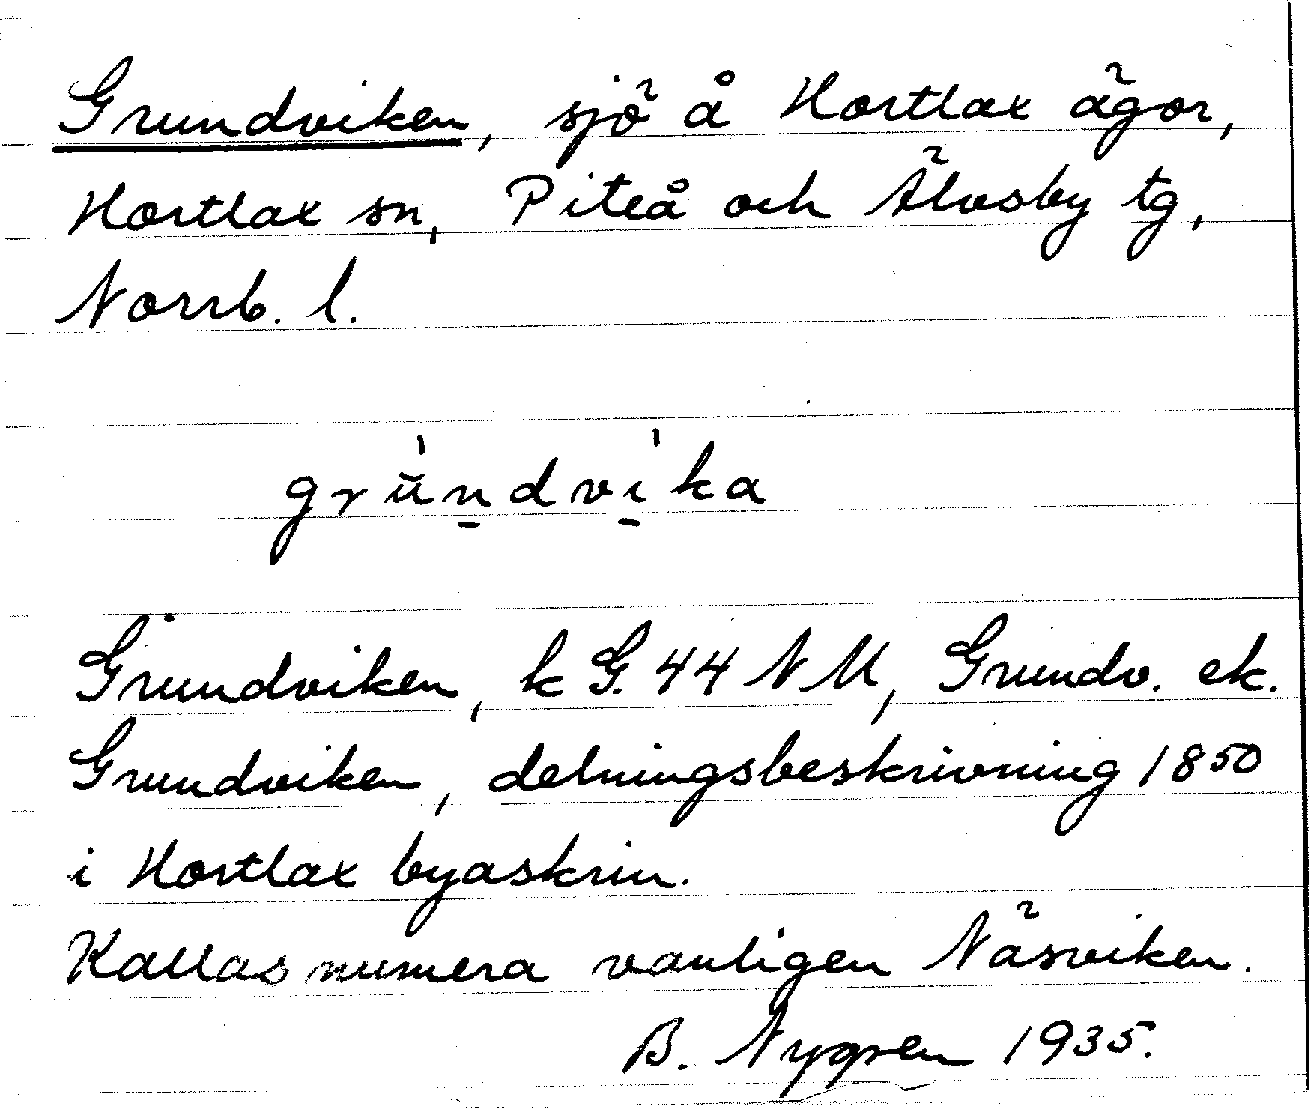 Grundviken, sjö å Hortlax ägor,
Hortlax sn, Piteå och Älvsby tg,
Norrb. l.
grundvika
Grundviken, k G. 44 N M, Grundv. ek.
Grundviken, delningsbeskrivning 1850
i Hortlax byaskrin.
Kallas numera vanligen Näsviken.
B. Nygren 1935.